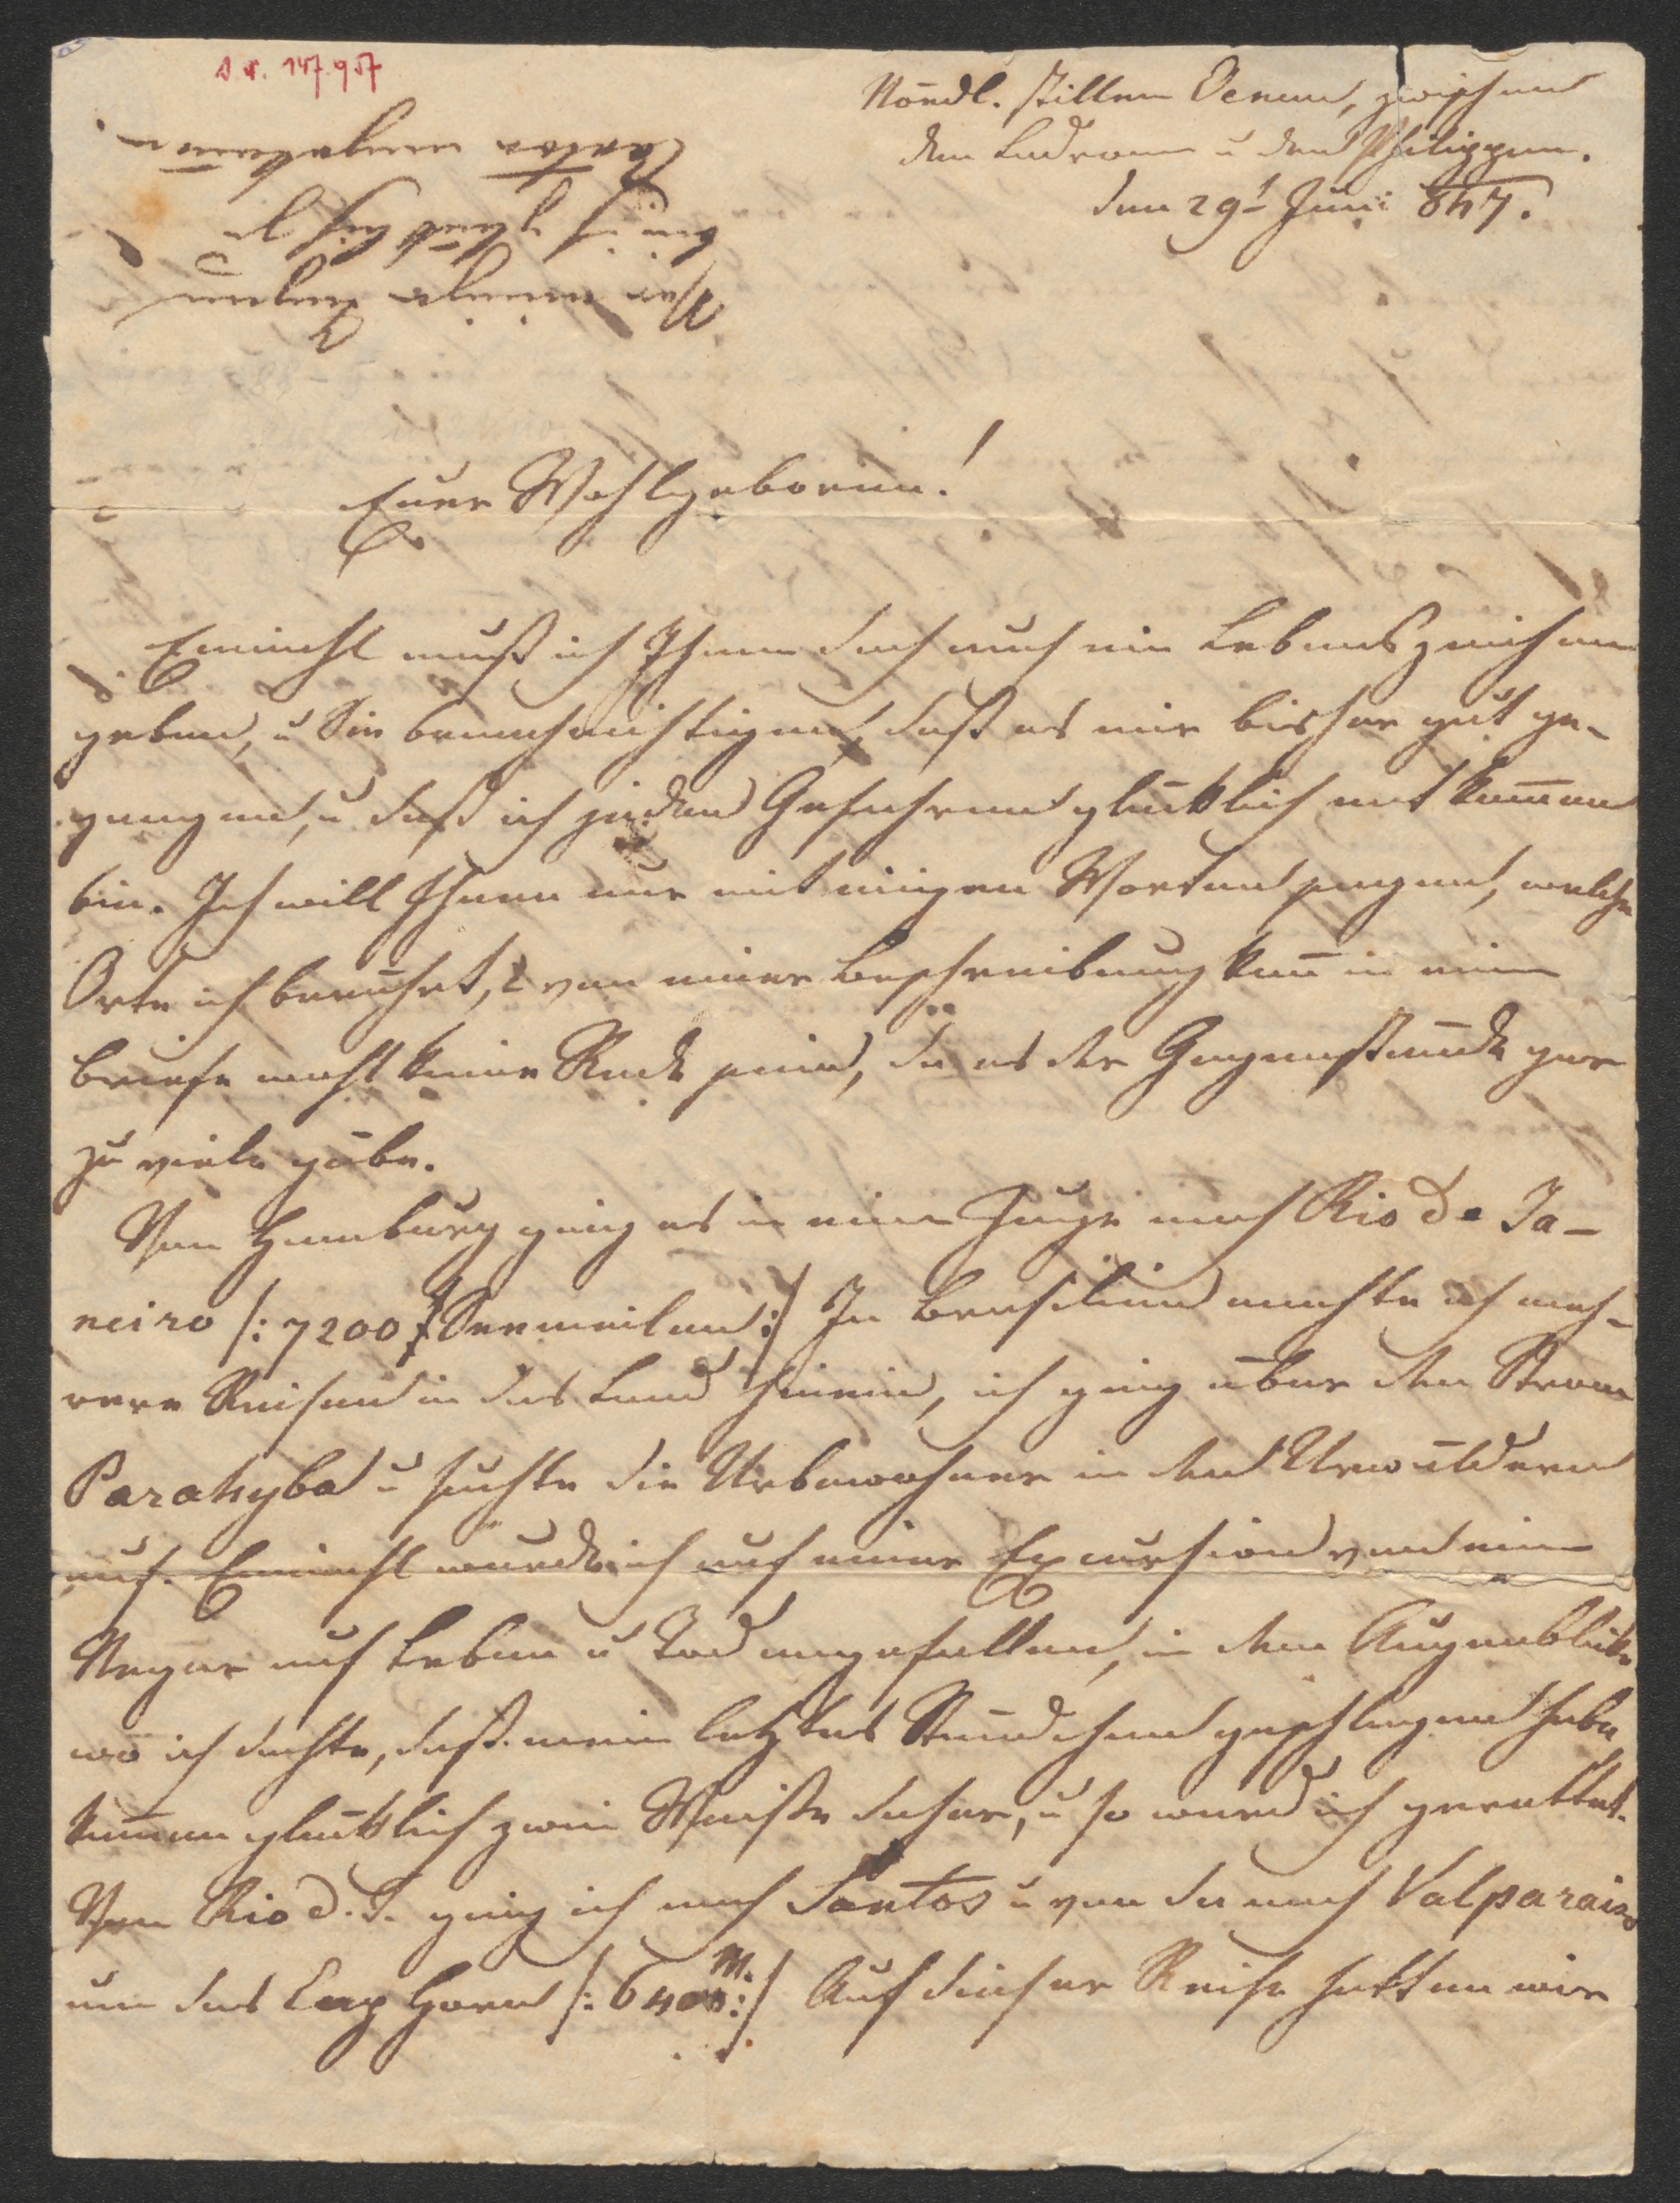 Nördl. stillen Ocean, zwischen
den Ladronen u den Philippinen.
den 29t Juni 847.
Vor einigen Tagen
bin ich glücklich in
Canton angekommen.
Euer Wohlgeboren!
Einmahl muß ich Ihnen doch auch ein Lebenszeichen
geben, u Sie benachrichtigen, daß es mir bisher gut ge-
gangen, u daß ich jeden Gefahren glücklich entkommen
bin. Ich will Ihnen nur mit einigen Worten sagen, welche
Orte ich berührt, von einer Beschreibung kann in einem
Briefe wohl keine Rede sein, da es der Gegenstände gar
zu viele gäbe.
Von Hamburg ging es in einem Zuge nach Rio de Ja-
neiro /: 7200 Seemeilen :/ In Brasilien machte ich meh-
rere Reisen in das Land hinein, ich ging über den Strom
Parahyba u suchte die Urbewohner in den Urwäldern
auf. Einmahl wurde ich auf einer Excursion von einem
Neger auf Leben u Tod angefallen, in dem Augenblicke
wo ich dachte, daß mein letztes Stündchen geschlagen habe,
kamen glücklich zwei Weiße daher, u so ward ich gerettet.
Von Rio d. J. ging ich nach Santos u von da nach Valparaiso
um das Cap Horn /: 6400 M. :/ Auf dieser Reise hatten wir